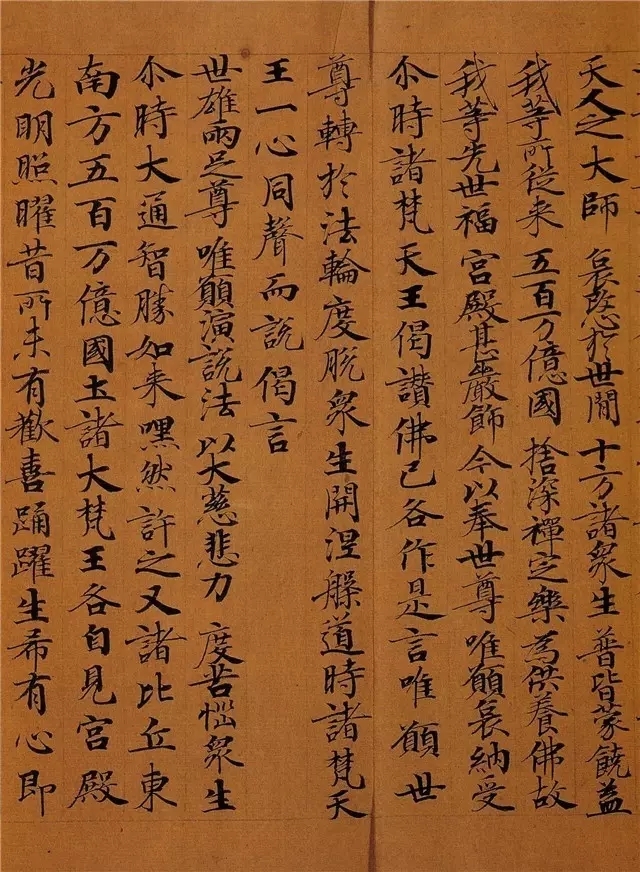 天人之大師 哀愍於世間 十方諸衆生 普皆蒙饒益
我等所従来 五百万億國 捨深禪定樂 為供養佛故
我等先世福 宮殿甚嚴飾 今以奉世尊 唯願哀納受
尒時諸梵天王偈讚佛已各作是言唯願世
尊轉於法輪度脫衆生開涅槃道時諸梵天
王一心同聲而說偈言
世雄兩足尊 唯願演說法 以大慈悲力 度苦惱衆生
尒時大通智勝如来嘿然許之又諸比丘東
南方五百万億國土諸大梵王各自見宮殿
光明照曜昔所未有歡喜踊躍生希有心即